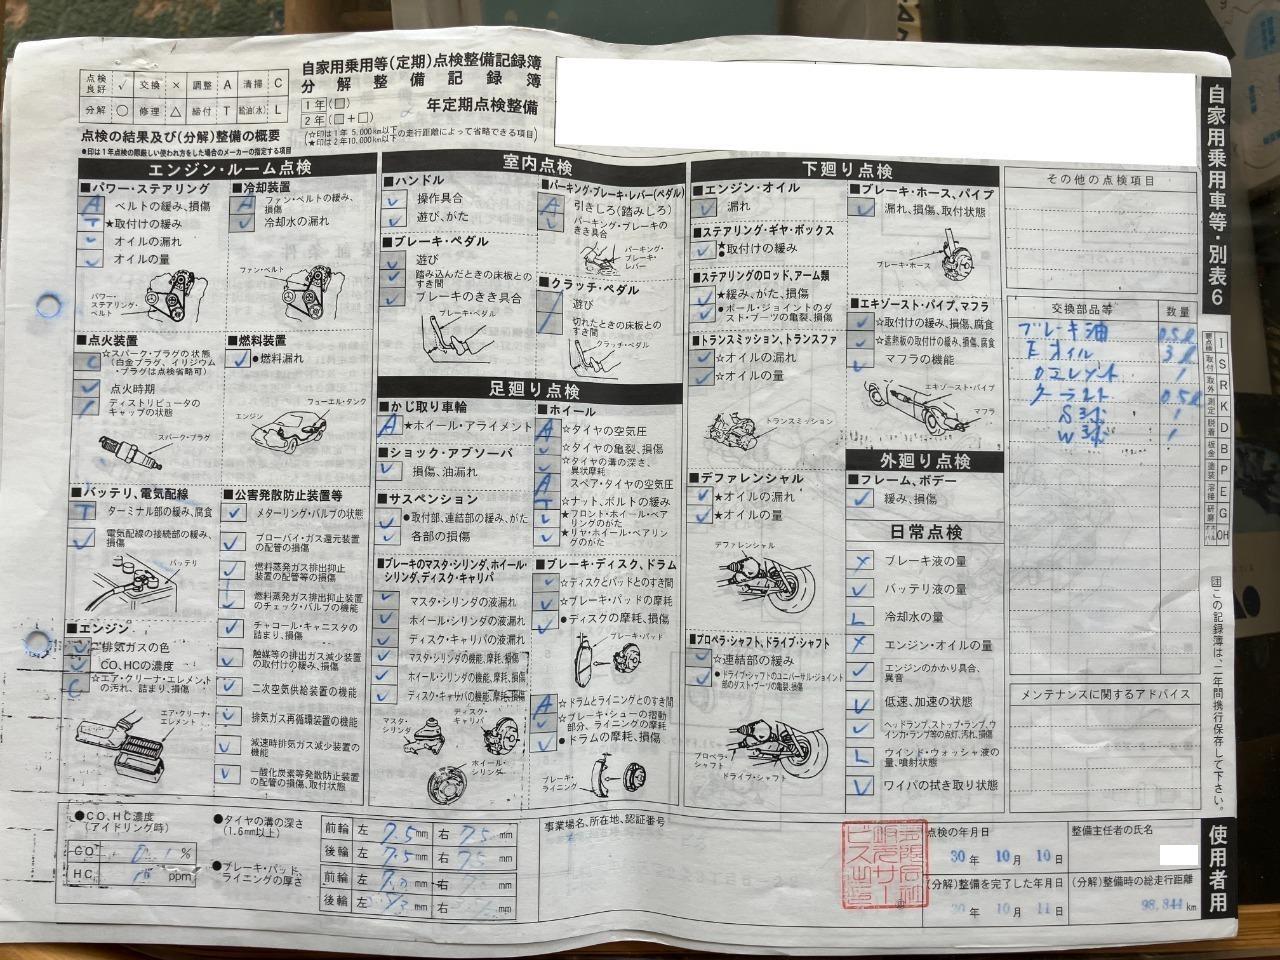 自家用乗用等(定期)点検整備記録簿
分解整備記録簿
点検良好 ✓ 交換 × 調整 A 清掃 C
分解 ○ 修理 △ 締付 T 給油(水) L
1年(□)
2年(□+□)
年定期点検整備
(☆印は1年 5,000km以下
(★印は2年10,000km以下の走行距離によって省略できる項目)
点検の結果及び(分解)整備の概要
●印は1年点検の際厳しい使われ方をした場合のメーカーの指定する項目
自家用乗用車等・別表6
エンジン・ルーム点検
■パワー・ステアリング
A ベルトの緩み、損傷
T ★取付けの緩み
✓ オイルの漏れ
✓ オイルの量
パワー・ステアリング・ベルト
■冷却装置
A ファン・ベルトの緩み、損傷
✓ 冷却水の漏れ
ファン・ベルト
■点火装置
C ☆スパーク・プラグの状態
(白金プラグ、イリジウム・プラグは点検省略可)
✓ 点火時期
ディストリビュータのキャップの状態
スパーク・プラグ
■燃料装置
✓ ●燃料漏れ
フューエル・タンク
エンジン
■バッテリ、電気配線
T ターミナル部の緩み、腐食
✓ 電気配線の接続部の緩み、損傷
バッテリ
■エンジン
✓ 排気ガスの色
✓ CO、HCの濃度
C ☆エア・クリーナ・エレメントの汚れ、詰まり、損傷
エア・クリーナ・エレメント
■公害発散防止装置等
✓ メターリング・バルブの状態
✓ ブローバイ・ガス還元装置の配管の損傷
✓ 燃料蒸発ガス排出抑止装置の配管等の損傷
燃料蒸発ガス排出抑止装置のチェック・バルブの機能
✓ チャコール・キャニスタの詰まり、損傷
✓ 触媒等の排出ガス減少装置の取付けの緩み、損傷
✓ 二次空気供給装置の機能
✓ 排気ガス再循環装置の機能
✓ 減速時排気ガス減少装置の機能
✓ 一酸化炭素等発散防止装置の配管の損傷、取付状態
室内点検
■ハンドル
✓ 操作具合
✓ 遊び、がた
■ブレーキ・ペダル
✓ 遊び
✓ 踏み込んだときの床板とのすき間
✓ ブレーキのきき具合
ブレーキ・ペダル
■パーキング・ブレーキ・レバー(ペダル)
A 引きしろ(踏みしろ)
✓ パーキング・ブレーキのきき具合
パーキング・ブレーキ・レバー
■クラッチ・ペダル
遊び
切れたときの床板とのすき間
クラッチ・ペダル
足廻り点検
■かじ取り車輪
A ★ホイール・アライメント
■ショック・アブソーバ
✓ 損傷、油漏れ
■サスペンション
✓ ●取付部、連結部の緩み、がた
✓ 各部の損傷
■ブレーキのマスタ・シリンダ、ホイール・シリンダ、ディスク・キャリパ
✓ マスタ・シリンダの液漏れ
✓ ホイール・シリンダの液漏れ
✓ ディスク・キャリパの液漏れ
✓ マスタ・シリンダの機能、摩耗、損傷
✓ ホイール・シリンダの機能、摩耗、損傷
✓ ディスク・キャリパの機能、摩耗、損傷
マスタ・シリンダ
ディスク・キャリパ
ホイール・シリンダ
■ホイール
A ☆タイヤの空気圧
✓ ☆タイヤの亀裂、損傷
✓ ☆タイヤの溝の深さ、異状摩耗
A スペア・タイヤの空気圧
T ☆ナット、ボルトの緩み
✓ ★フロント・ホイール・ベアリングのがた
✓ ★リヤ・ホイール・ベアリングのがた
■ブレーキ・ディスク、ドラム
✓ ☆ディスクとパッドとのすき間
✓ ☆ブレーキ・パッドの摩耗
✓ ●ディスクの摩耗、損傷
ブレーキ・パッド
A ☆ドラムとライニングとのすき間
✓ ☆ブレーキ・シューの摺動部分、ライニングの摩耗
✓ ●ドラムの摩耗、損傷
ブレーキ・ライニング
下廻り点検
■エンジン・オイル
✓ 漏れ
■ステアリング・ギヤ・ボックス
✓ ★取付けの緩み
■ステアリングのロッド、アーム類
✓ ★緩み、がた、損傷
✓ ●ボール・ジョイントのダスト・ブーツの亀裂、損傷
■トランスミッション、トランスファ
✓ ☆オイルの漏れ
✓ ☆オイルの量
トランスミッション
■デファレンシャル
✓ ★オイルの漏れ
✓ ★オイルの量
デファレンシャル
■プロペラ・シャフト、ドライブ・シャフト
✓ ☆連結部の緩み
✓ ●ドライブ・シャフトのユニバーサル・ジョイント部のダスト・ブーツの亀裂、損傷
プロペラ・シャフト
ドライブ・シャフト
■ブレーキ・ホース、パイプ
✓ 漏れ、損傷、取付状態
ブレーキ・ホース
■エキゾースト・パイプ、マフラ
✓ ☆取付けの緩み、損傷、腐食
✓ ☆遮熱板の取付けの緩み、損傷、腐食
✓ マフラの機能
エキゾースト・パイプ
マフラ
外廻り点検
■フレーム、ボデー
✓ 緩み、損傷
日常点検
× ブレーキ液の量
✓ バッテリ液の量
L 冷却水の量
× エンジン・オイルの量
✓ エンジンのかかり具合、異音
✓ 低速、加速の状態
✓ ヘッドランプ、ストップ・ランプ、ウインカ・ランプ等の点灯、汚れ、損傷
L ウインド・ウォッシャ液の量、噴射状態
✓ ワイパの拭き取り状態
その他の点検項目
交換部品等 数量
ブレーキ油 0.5ℓ
Eオイル 3ℓ
1
0.5ℓ
S球 1
W球 1
メンテナンスに関するアドバイス
要点検 I
取付 S
取外 R
測定 K
脱着 D
板金 B
塗装 P
溶接 E
研磨 G
OH
注この記録簿は、二年間携行保存して下さい。
使用者用
●CO、HC濃度
(アイドリング時)
CO 0.1 %
HC ppm
●タイヤの溝の深さ
(1.6mm以上)
●ブレーキ・パッド、ライニングの厚さ
前輪 左 7.5 mm 右 7.5 mm
後輪 左 7.5 mm 右 7.5 mm
前輪 左 mm 右 mm
後輪 左 mm 右 mm
事業場名、所在地、認証番号
点検の年月日
30年 10月 10日
(分解)整備を完了した年月日
30年 10月 11日
整備主任者の氏名
(分解)整備時の総走行距離
98,844 km